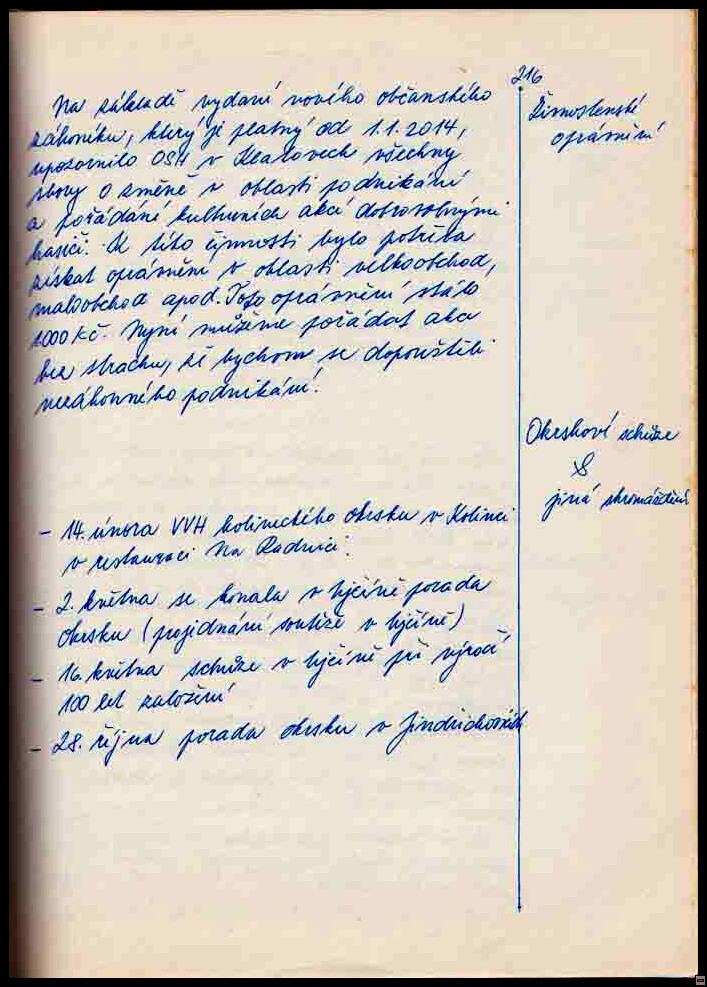 216
Živnostenské
oprávnění
Na základě vydaní nového občanského
zákoníku, který je platný od 1.1.2014,
upozornilo OSH v Klatovech všechny
sbory o změně v oblasti podnikání
a pořádání kulturních akcí dobrovolnými
hasiči. K této činnosti bylo potřeba
získat oprávnění v oblasti velkoobchod,
maloobchod apod. Toto oprávnění stálo
1000 Kč. Nyní můžeme pořádat akce
bez strachu, že bychom se dopouštěli
nezákonného podnikání.
Okrskové schůze
&
jiná shromáždění
- 14. února VVH kolineckého okrsku v Kolinci
v restauraci Na Radnici.
- 2. května se konala v Ujčíně porada
okrsku (projednání soutěže v Ujčíně)
- 16. května schůze v Ujčíně při výročí
100 let založení
- 28. října porada okrsku v Jindřichovicích